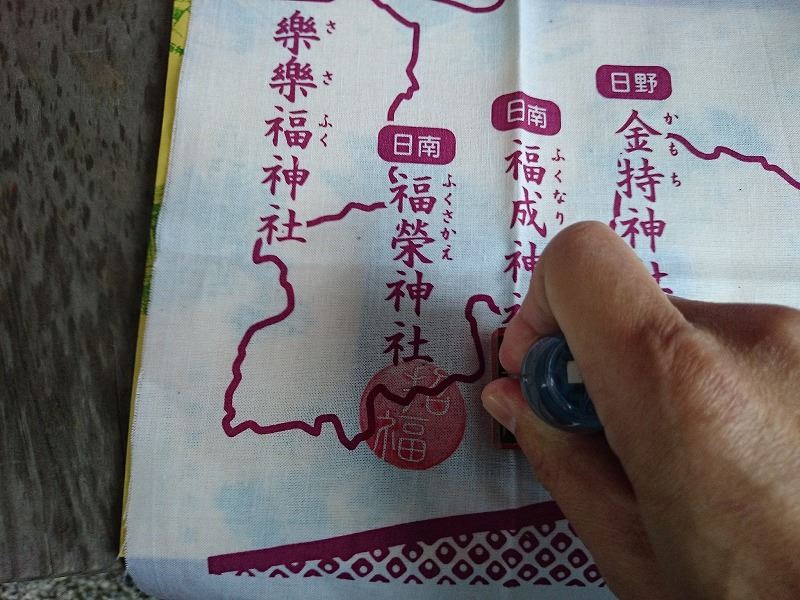 日野
金持神社
かもち
日南
福成神
ふくなり
日南
福榮神社
ふくさかえ
樂樂福神社
ささふく
招福